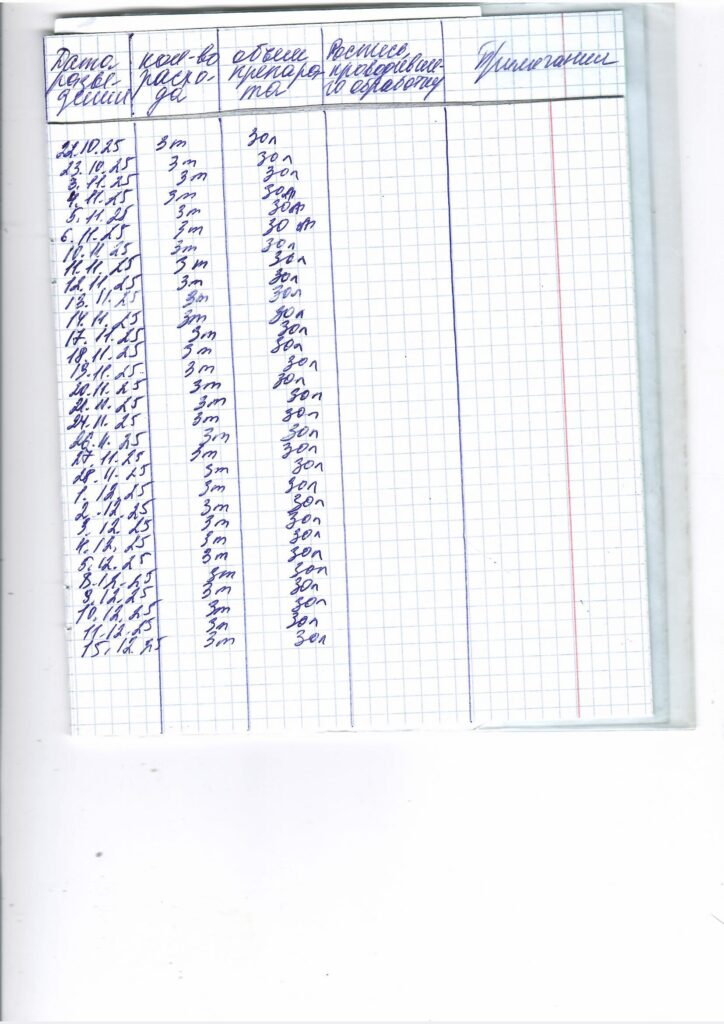 Дата разве- дении кол-во расхо- да объем препара- та Роспись проводивше- го обработку Примечании
22.10.25 3т 30л
23.10.25 3т 30л
3.11.25 3т 30л
4.11.25 3т 30л
5.11.25 3т 30л
6.11.25 3т 30л
10.11.25 3т 30л
11.11.25 3т 30л
12.11.25 3т 30л
13.11.25 3т 30л
14.11.25 3т 30л
17.11.25 3т 30л
18.11.25 3т 30л
19.11.25 3т 30л
20.11.25 3т 30л
21.11.25 3т 30л
24.11.25 3т 30л
26.11.25 3т 30л
27.11.25 3т 30л
28.11.25 3т 30л
1.12.25 3т 30л
2.12.25 3т 30л
3.12.25 3т 30л
4.12.25 3т 30л
5.12.25 3т 30л
8.12.25 3т 30л
9.12.25 3т 30л
10.12.25 3т 30л
11.12.25 3т 30л
15.12.25 3т 30л